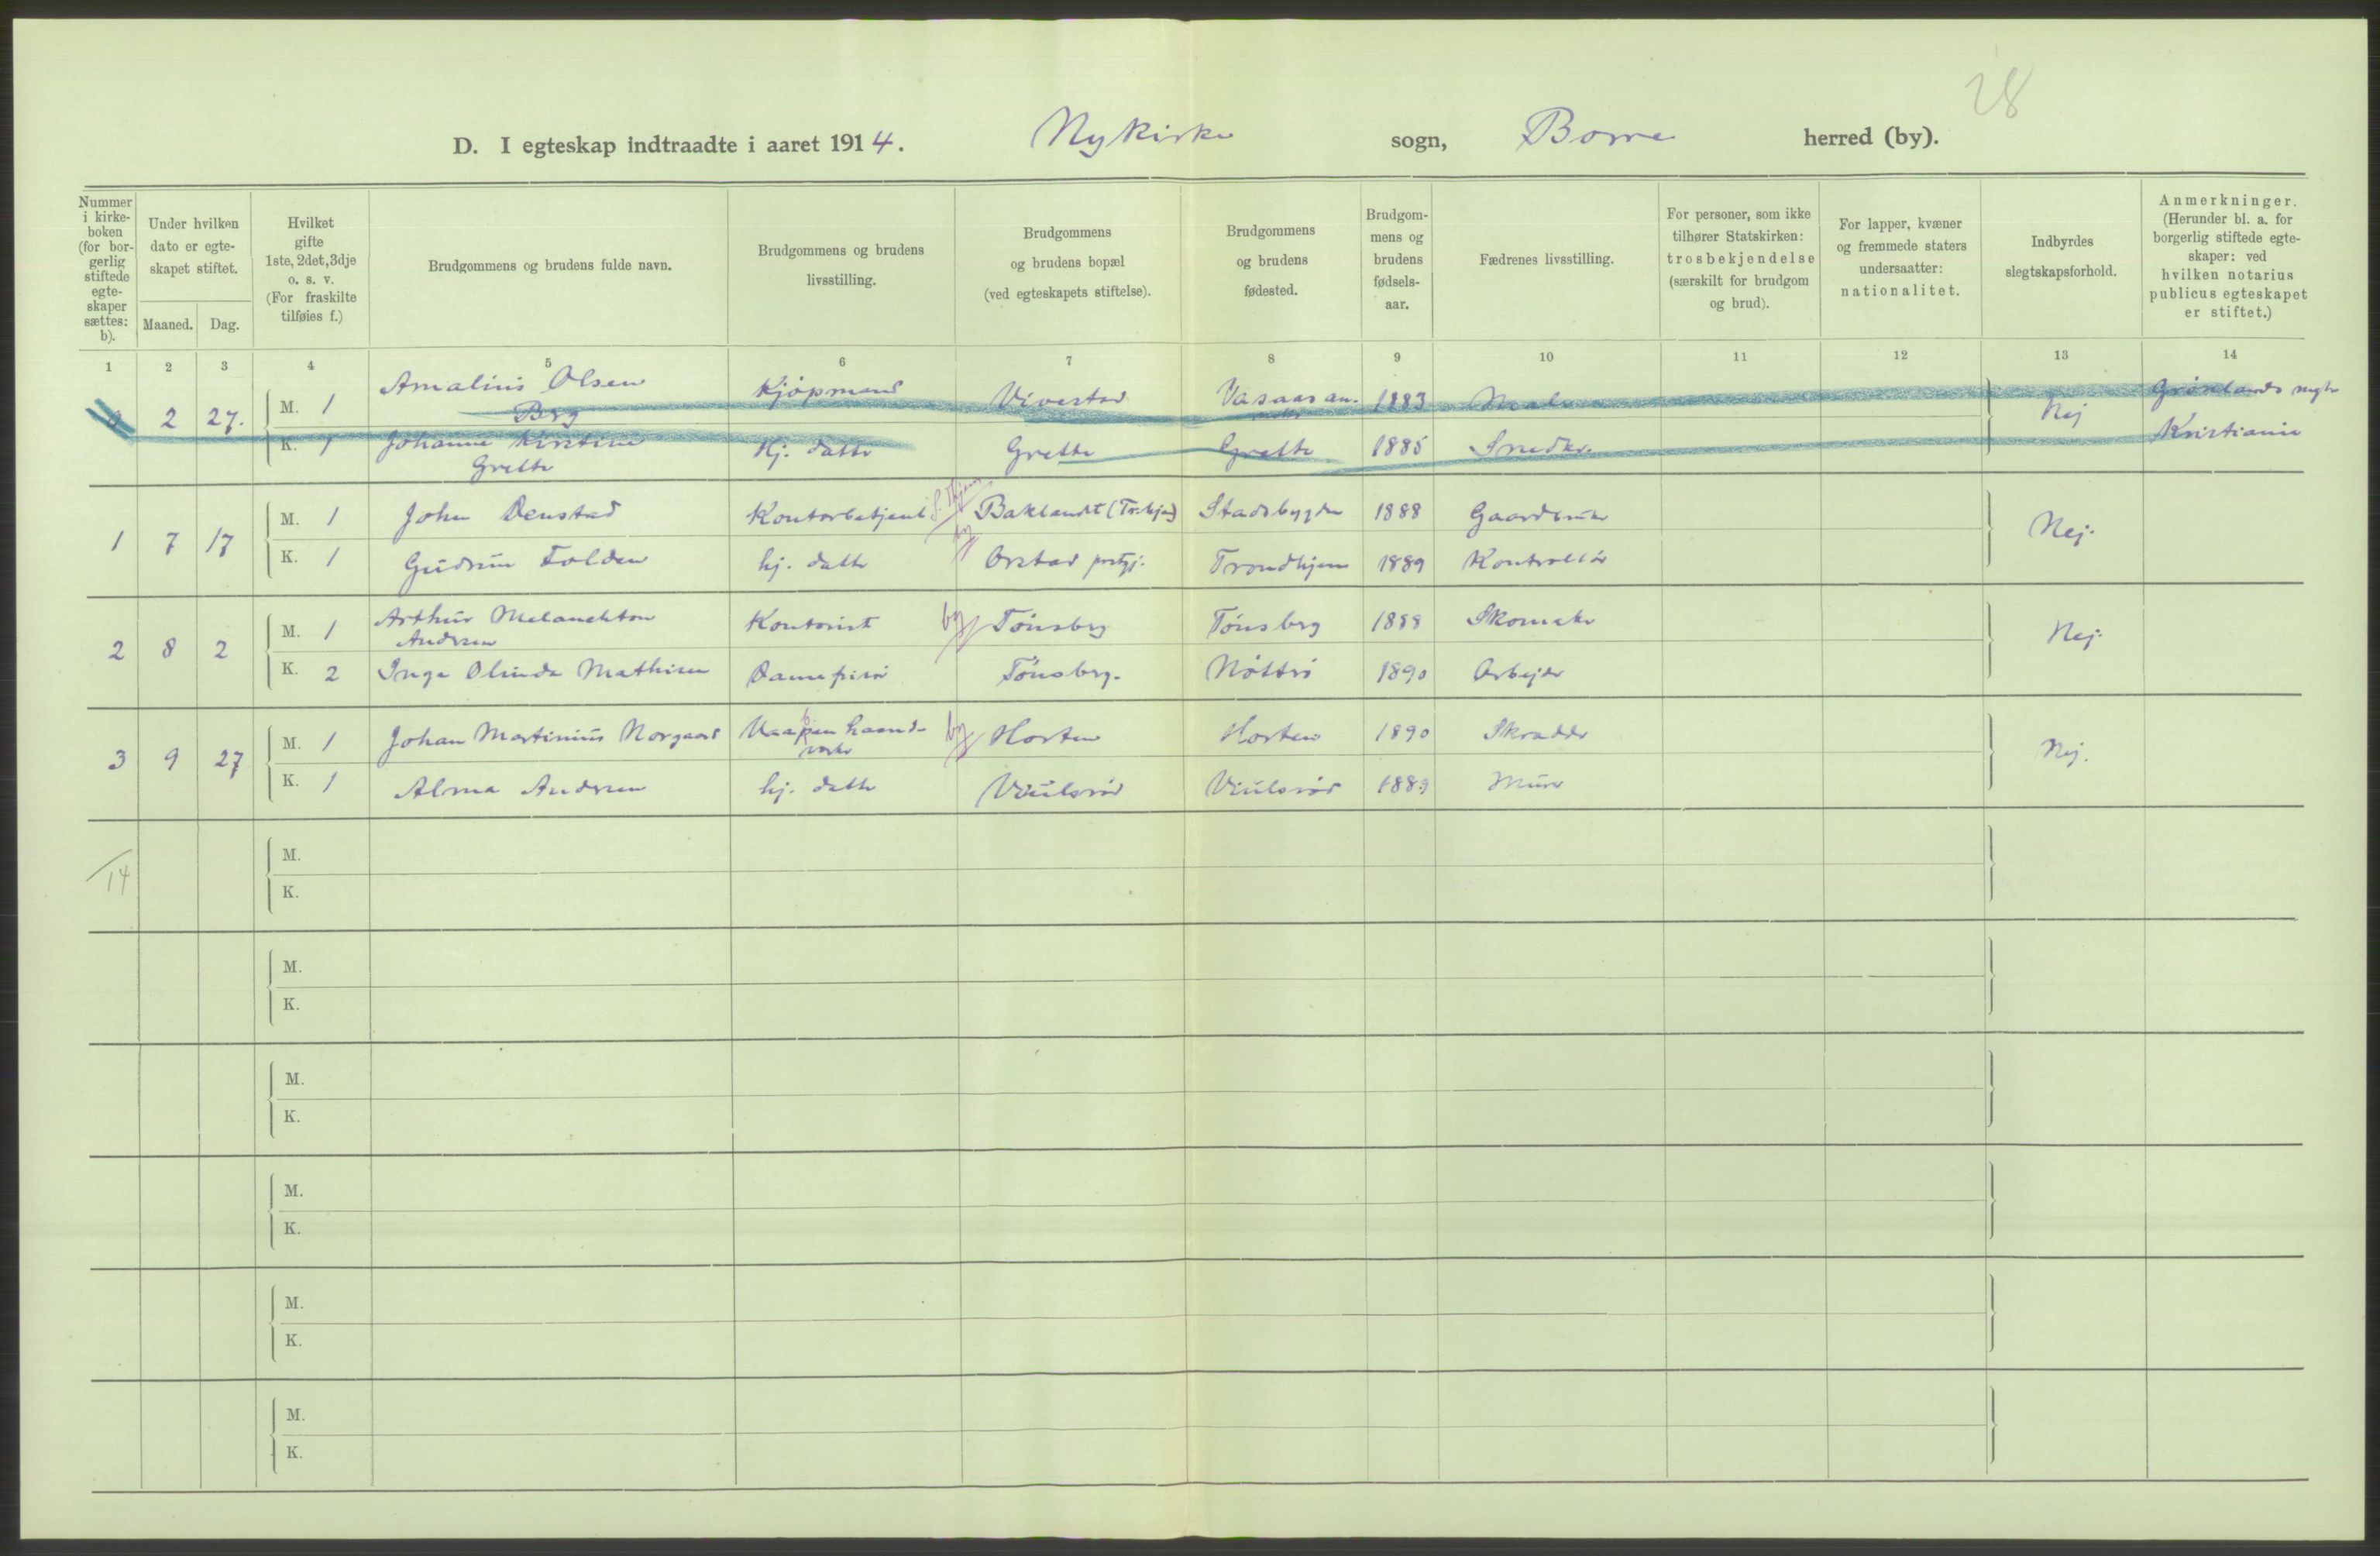 28
D. I egteskap indtraadte i aaret 1914. Nykirke sogn, Borre herred (by).
Nummer i kirke-boken (for bor-gerlig stiftede egte-skaper sættes: b).
Under hvilken dato er egte-skapet stiftet.
Maaned. Dag.
Hvilket gifte 1ste, 2det, 3dje o. s. v. (For fraskilte tilføies f.)
Brudgommens og brudens fulde navn.
Brudgommens og brudens livsstilling.
Brudgommens og brudens bopæl (ved egteskapets stiftelse).
Brudgommens og brudens fødested.
Brudgom-mens og brudens fødsels-aar.
Fædrenes livsstilling.
For personer, som ikke tilhører Statskirken: trosbekjendelse (særskilt for brudgom og brud).
For lapper, kvæner og fremmede staters undersaatter: nationalitet.
Indbyrdes slegtskapsforhold.
Anmerkninger. (Herunder bl. a. for borgerlig stiftede egte-skaper: ved hvilken notarius publicus egteskapet er stiftet.)
1 2 3 4 5 6 7 8 9 10 11 12 13 14
2 27. M. 1 Amalius Olsen Berg Kjøpmand Vivestad Vasaas an. 1883 Nej Grønlands
K. 1 Johanne Kirstine Grette Hj. datter Grette Grette 1885 Snedker Kristiania
1 7 17 M. 1 John Denstad Kontorbetjent Baklandt (Tr.hjem) Stadsbygden 1888 Gaardbruker Nej.
K. 1 Gudrun Folden hj. datter Orstad Trondhjem 1889 Kontrollør
2 8 2 M. 1 Arthur Melanchton Andersen Kontorist by Tønsberg Tønsberg 1888 Skomaker Nej.
K. 2 Inga Olinda Mathisen Damefrisør Tønsberg. Nøtterø 1890 Arbejder
3 9 27 M. 1 Johan Martinius Norgaard Vaapenhaand-verker by Horten Horten 1890 Skrædder Nej.
K. 1 Alma Andersen hj. datter Viulsrød Viulsrød 1889 Murer
14 M.
K.
M.
K.
M.
K.
M.
K.
M.
K.
M.
K.